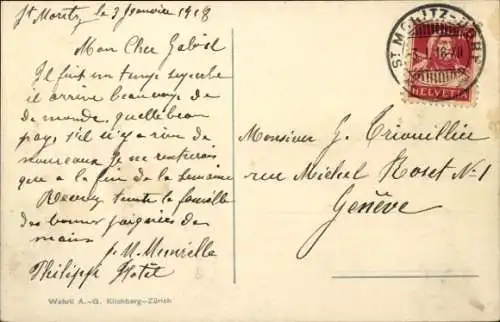 St Moritz le 3 Janvier 1918
Mon Cher
Il fait un temps superbe
il arrive beaucoup de
de monde, quelle beau
pays, s'il n'y a rien de
nouveaux je ne rentrerais
que a la fin de la semaine
toute la famille
des bonnes poignées de
mains
Philippe Hotel
Wehrli A.-G. Kilchberg-Zürich
ST. MORITZ-DORF
HELVETIA
Monsieur J.
rue Michel Roset No 1
Genève